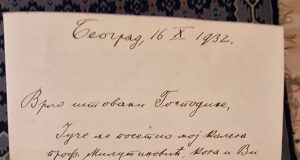 Београд, 16 X 1932.
Врло поштовани Господине,
Јуче ме посетио мој колега
проф. Милутиновић, кога и Ви